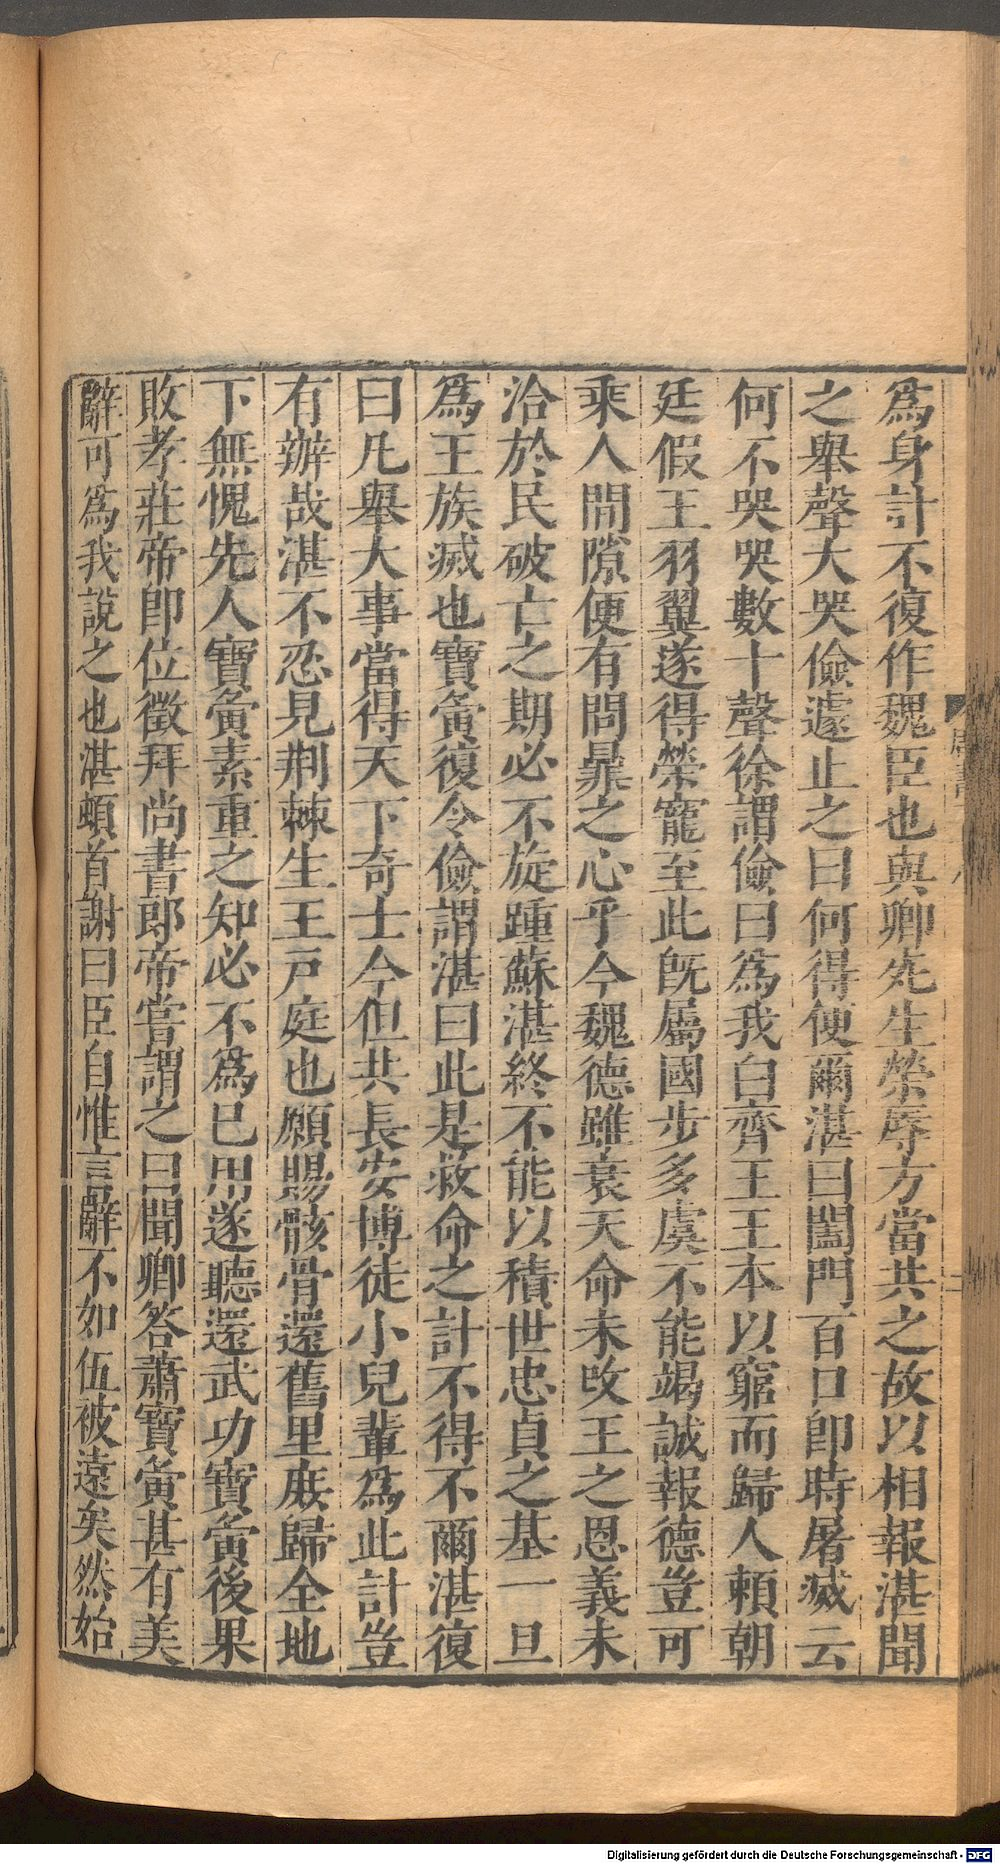 爲身計不復作魏臣也與卿死生榮辱方當共之故以相報湛聞
之舉聲大哭儉遽止之曰何得便爾湛曰闔門百口卽時屠滅云
何不哭哭數十聲徐謂儉曰爲我白齊王王本以窮而歸人賴朝
廷假王羽翼遂得榮寵至此旣屬國步多虞不能竭誠報德豈可
乘人間隙便有問鼎之心乎今魏德雖衰天命未改王之恩義未
洽於民破亡之期必不旋踵蘇湛終不能以積世忠貞之基一旦
爲王族滅也寶夤復令儉謂湛曰此是救命之計不得不爾湛復
曰凡舉大事當得天下奇士今但共長安博徒小兒輩爲此計豈
有辦哉湛不忍見荆棘生王戸庭也願賜骸骨還舊里庻歸全地
下無愧先人寶夤素重之知必不爲已用遂聽還武功寶夤後果
敗孝莊帝卽位徵拜尚書郎帝嘗謂之曰聞卿答蕭寶夤甚有美
辭可爲我說之也湛頓首謝曰臣自惟言辭不如伍被遠矣然始
Digitalisierung gefördert durch die Deutsche Forschungsgemeinschaft - DFG